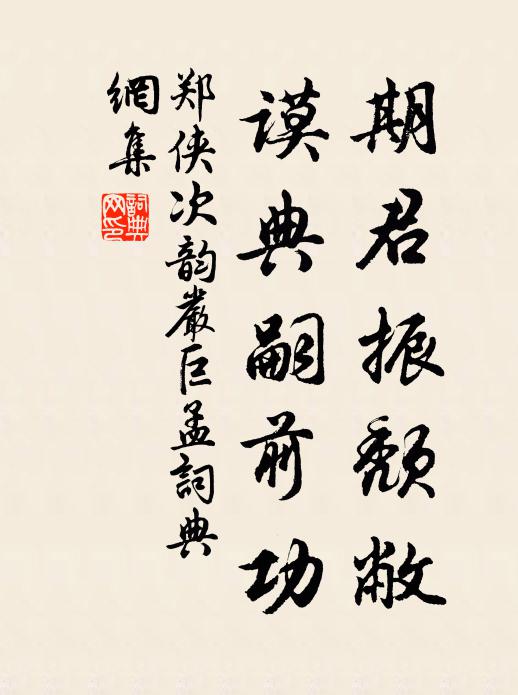 期君振頹敝
謨典嗣前功
郑侠次韵嚴巨孟詞典
網集
詞典
网印